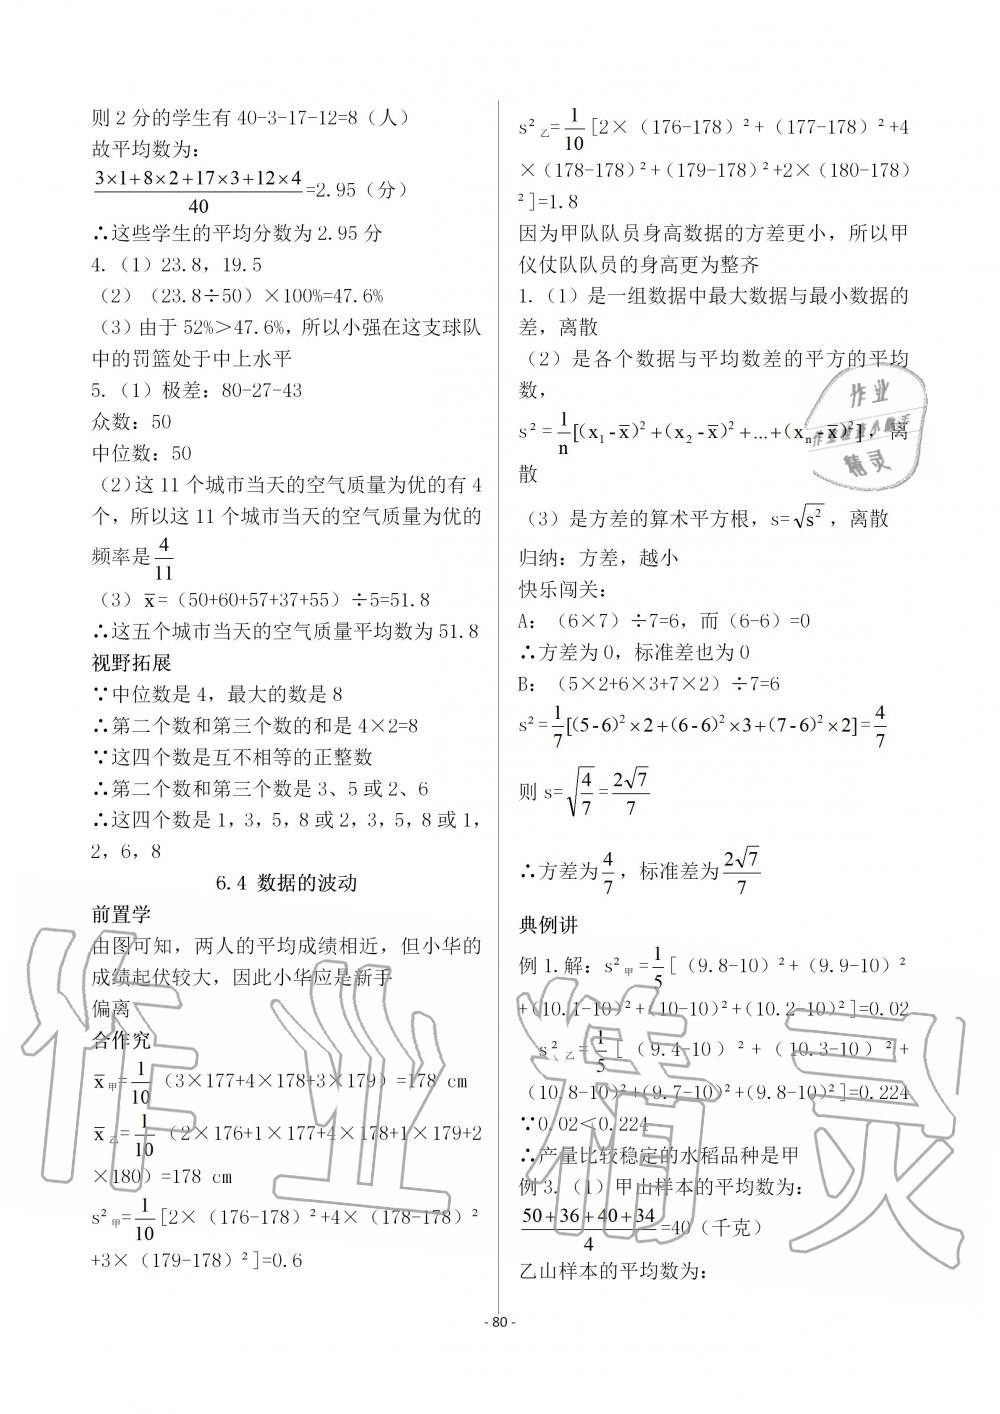 则 2 分的学生有 40-3-17-12=8（人）
故平均数为：
(3×1+8×2+17×3+12×4)/40=2.95（分）
∴这些学生的平均分数为 2.95 分
4.（1）23.8，19.5
（2）（23.8÷50）×100%=47.6%
（3）由于 52%＞47.6%，所以小强在这支球队
中的罚篮处于中上水平
5.（1）极差：80-27-43
众数：50
中位数：50
（2）这 11 个城市当天的空气质量为优的有 4
个，所以这 11 个城市当天的空气质量为优的
频率是 4/11
（3）x̄=（50+60+57+37+55）÷5=51.8
∴这五个城市当天的空气质量平均数为 51.8
视野拓展
∵中位数是 4，最大的数是 8
∴第二个数和第三个数的和是 4×2=8
∵这四个数是互不相等的正整数
∴第二个数和第三个数是 3、5 或 2、6
∴这四个数是 1，3，5，8 或 2，3，5，8 或 1，
2，6，8
6.4 数据的波动
前置学
由图可知，两人的平均成绩相近，但小华的
成绩起伏较大，因此小华应是新手
偏离
合作究
x̄甲=1/10（3×177+4×178+3×179）=178 cm
x̄乙=1/10（2×176+1×177+4×178+1×179+2
×180）=178 cm
s²甲=1/10[2×（176-178）²+4×（178-178）²
+3×（179-178）²]=0.6
s²乙=1/10[2×（176-178）²+（177-178）²+4
×（178-178）²+（179-178）²+2×（180-178）
²]=1.8
因为甲队队员身高数据的方差更小，所以甲
仪仗队队员的身高更为整齐
1.（1）是一组数据中最大数据与最小数据的
差，离散
（2）是各个数据与平均数差的平方的平均
数，
s²=1/n[(x₁-x̄)²+(x₂-x̄)²+...+(xₙ-x̄)²]，离
散
（3）是方差的算术平方根，s=√s²，离散
归纳：方差，越小
快乐闯关：
A：（6×7）÷7=6，而（6-6）=0
∴方差为 0，标准差也为 0
B：（5×2+6×3+7×2）÷7=6
s²=1/7[(5-6)²×2+(6-6)²×3+(7-6)²×2]=4/7
则 s=√(4/7)=2√7/7
∴方差为 4/7，标准差为 2√7/7
典例讲
例 1.解：s²甲=1/5[（9.8-10）²+（9.9-10）²
+（10.1-10）²+（10-10）²+（10.2-10）²]=0.02
s²乙=1/5[（9.4-10）²+（10.3-10）²+
（10.8-10）²+（9.7-10）²+（9.8-10）²]=0.224
∵0.02＜0.224
∴产量比较稳定的水稻品种是甲
例 3.（1）甲山样本的平均数为：
(50+36+40+34)/4=40（千克）
乙山样本的平均数为：
- 80 -
作业
精灵
作业精灵